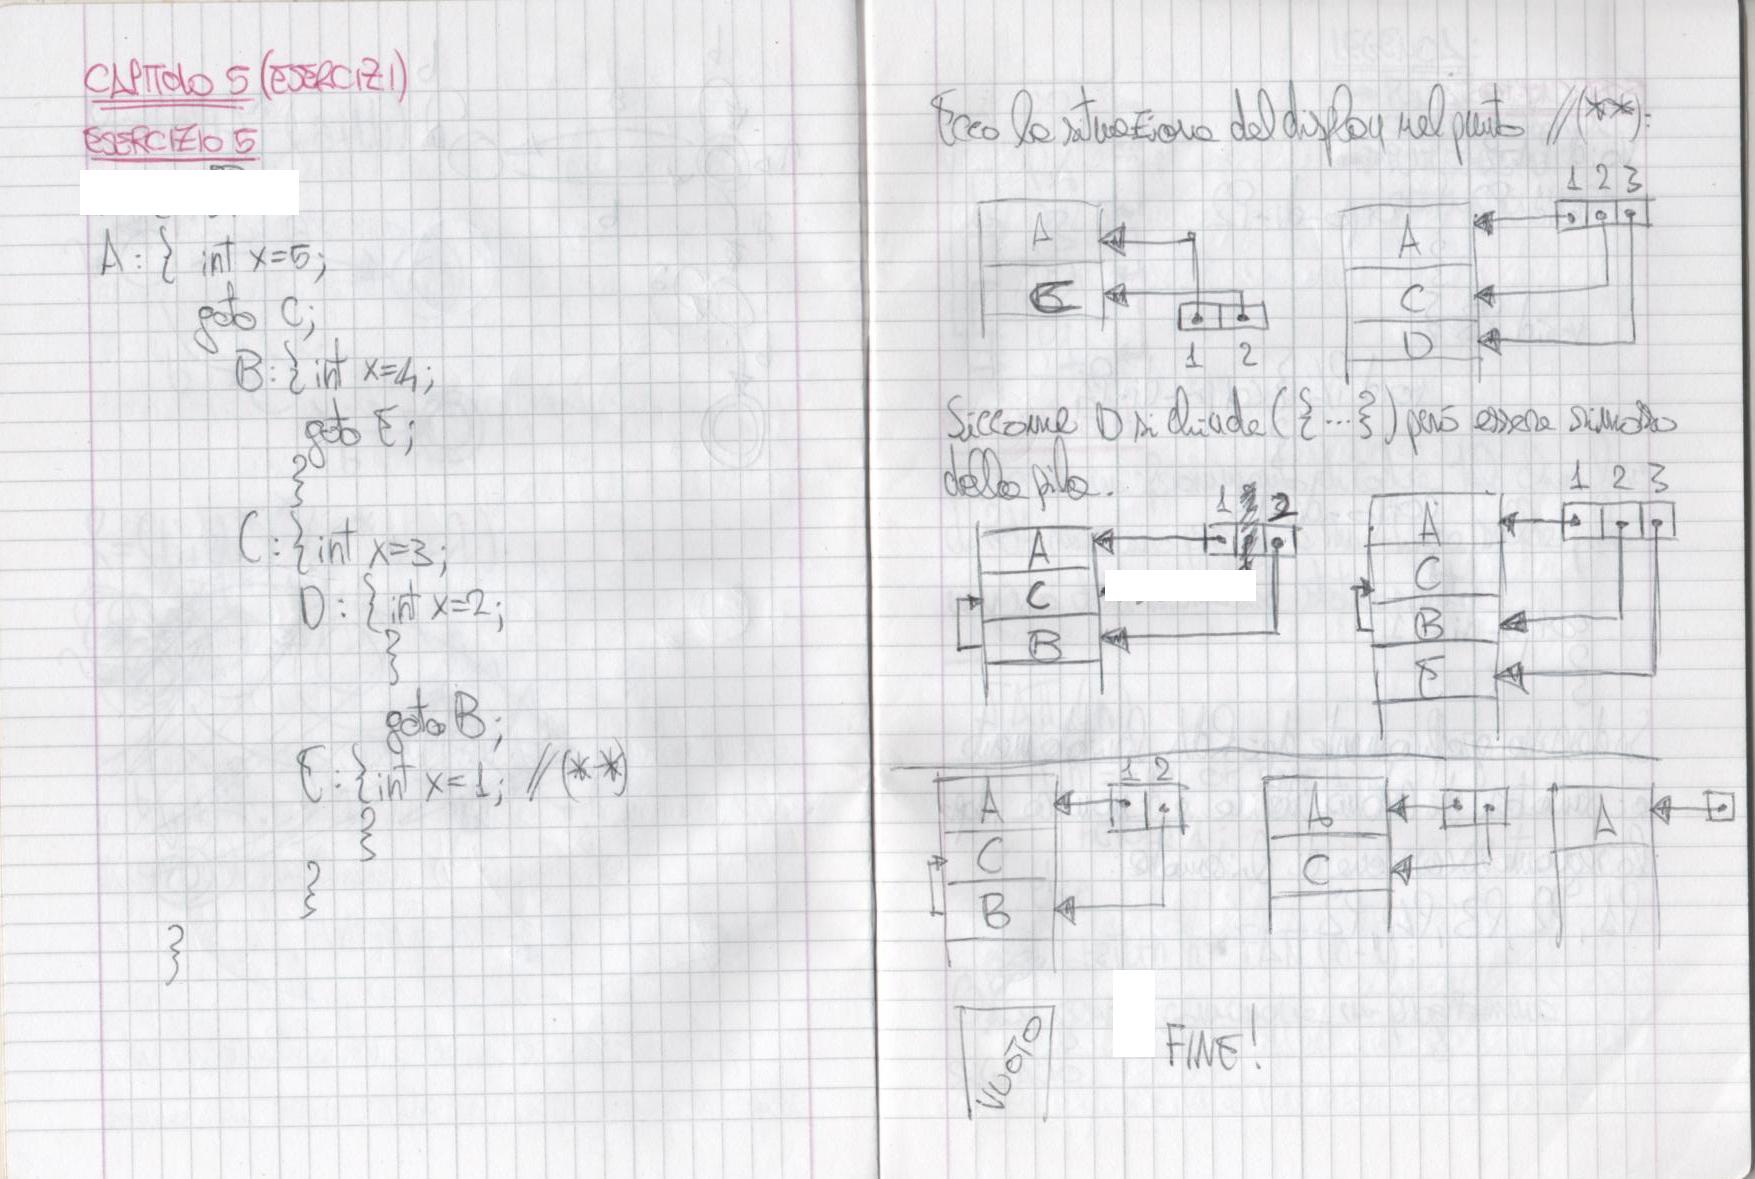 CAPITOLO 5 (ESERCIZI)
ESERCIZIO 5
A: { int x=5;
goto C;
B: { int x=4;
goto E;
}
C: { int x=3;
D: { int x=2;
}
goto B;
E: { int x=1; //(**)
}
}
}
Ecco la situazione del display nel punto //(**):
1 2 3
A
C
1 2
A
C
D
Siccome D si chiude ({...}) può essere rimosso
dalla pila.
1 2
A
C
B
1 2 3
A
C
B
E
1 2
A
C
B
A
C
A
VUOTO
FINE!